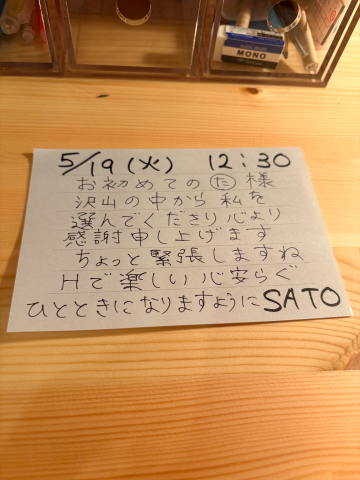 MONO
5/19(火) 12:30
お初めての㋟様
沢山の中から私を
選んでくださり心より
感謝申し上げます
ちょっと緊張しますね
Hで楽しい心安らぐ
ひとときになりますように SATO